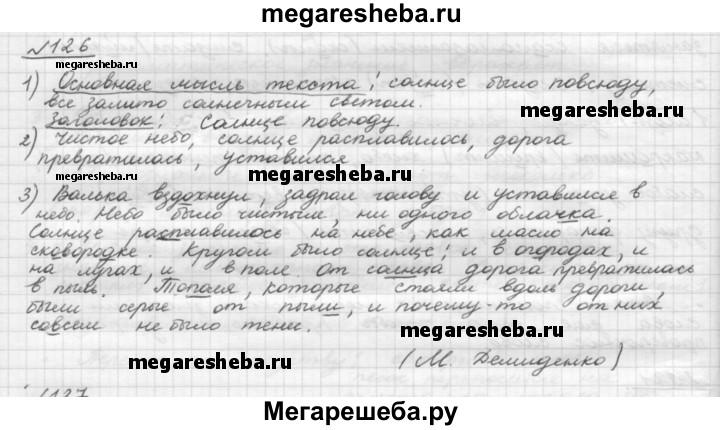 megaresheba.ru
№126
1) Основная мысль текста: солнце было повсюду,
все залито солнечным светом.
megaresheba.ru
Заголовок: Солнце повсюду.
2) Чистое небо, солнце расплавилось, дорога
превратилась, уставился
megaresheba.ru
3) Валька вздохнул, задрал голову и уставился в
небо. Небо было чистым, ни одного облачка.
Солнце расплавилось на небе, как масло на
сковородке. Кругом было солнце: и в огородах, и
на лугах, и в поле. От солнца дорога превратилась
в пыль. Тополя, которые стояли вдоль дороги,
были серые от пыли, и почему-то от них
совсем не было тени.
megaresheba.ru
megaresheba.ru
(М. Демиденко)
127
Мегарешеба.ру